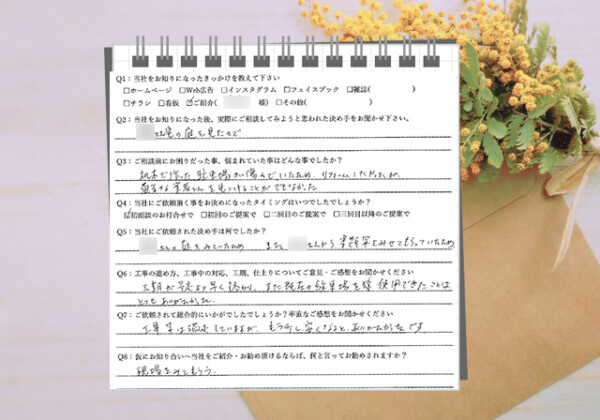 Q1：当社をお知りになったきっかけを教えて下さい
□ホームページ □Web広告 □インスタグラム □フェイスブック □雑誌( )
□チラシ □看板 ☑ご紹介( 様) □その他( )
Q2：当社をお知りになった後、実際にご相談してみようと思われた決め手をお聞かせ下さい。
の庭を見たので
Q3：ご相談前にお困りだった事、悩まれていた事はどんな事でしたか？
駐車場が傷んでいたため、リフォームしたかったが、
業者さんを見つけることができなかった
Q4：当社にご依頼頂く事をお決めになったタイミングはいつでしたでしょうか？
☑初面談のお打合せで □初回のご提案で □二回目のご提案で □三回目以降のご提案で
Q5：当社にご依頼された決め手は何でしたか？
さんの庭をみていたため また さんから 等をみせてもらっていたため
Q6：工事の進め方、工事中の対応、工期、仕上りについてご意見・ご感想をお聞かせください
工期が予定より早く終わり、また現在の駐車場を 使用できたことは
とてもありがたかった。
Q7：ご依頼されて総合的にいかがでしたでしょうか？率直なご感想をお聞かせください
工事等は満足していますが、もう少し安くなると、ありがたかったです
Q8：仮にお知り合いへ当社をご紹介・お勧め頂けるならば、何と言ってお勧めされますか？
現場をみてもらう。